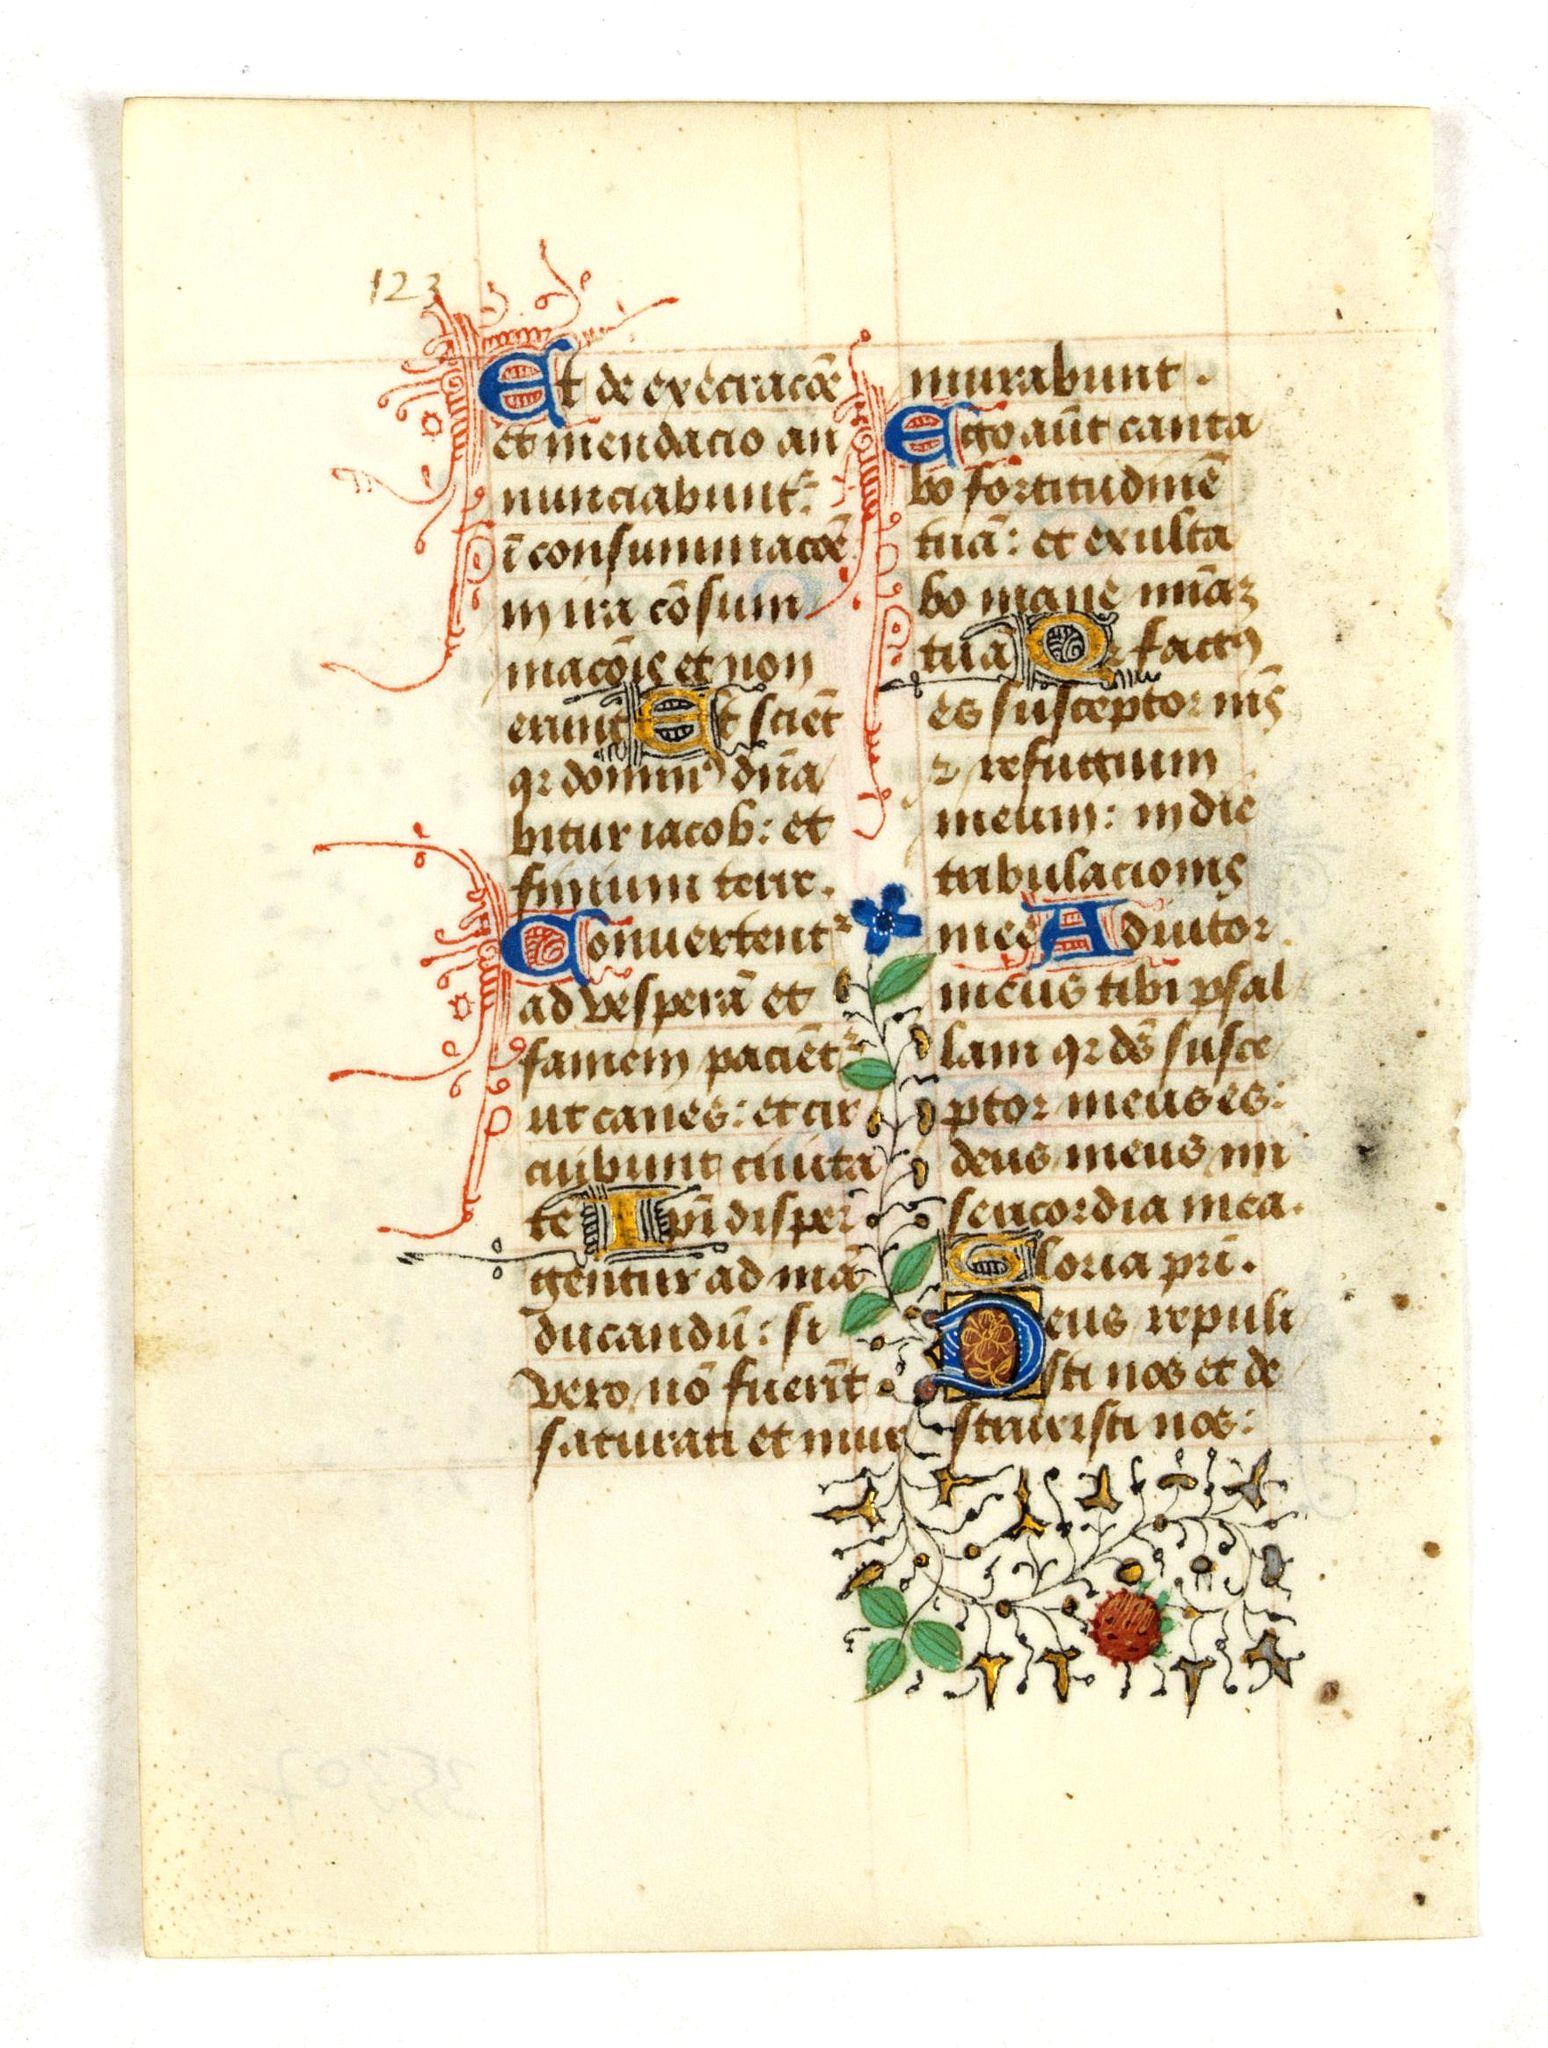 123
Et de execracōe
et mendacio an
nunciabunt:
ī consummacōe
in ira cōsum
macōis et non
erunt Et sciēt
qr domin⁹ dn̄a
bitur iacob: et
finium terre.
Convertentr
ad vesperā et
famem paciētr
ut canes: et cir
cuibunt civita
tē Ipī disper
gentur ad mā
ducandū: si
vero nō fuerīt
saturati et mur
murabunt.
Ego aūt canta
bo fortitudinē
tuā: et exulta
bo mane mīaz
tuā Qr fact⁹
es susceptor ms̄
⁊ refugium
meum: in die
tribulacionis
mee Adiutor
meus tibi psal
lam qr ds̄ susce
ptor meus es:
deus meus mi
sericordia mea.
Gloria pri.
Deus repuli
sti nos et de
struxisti nos: